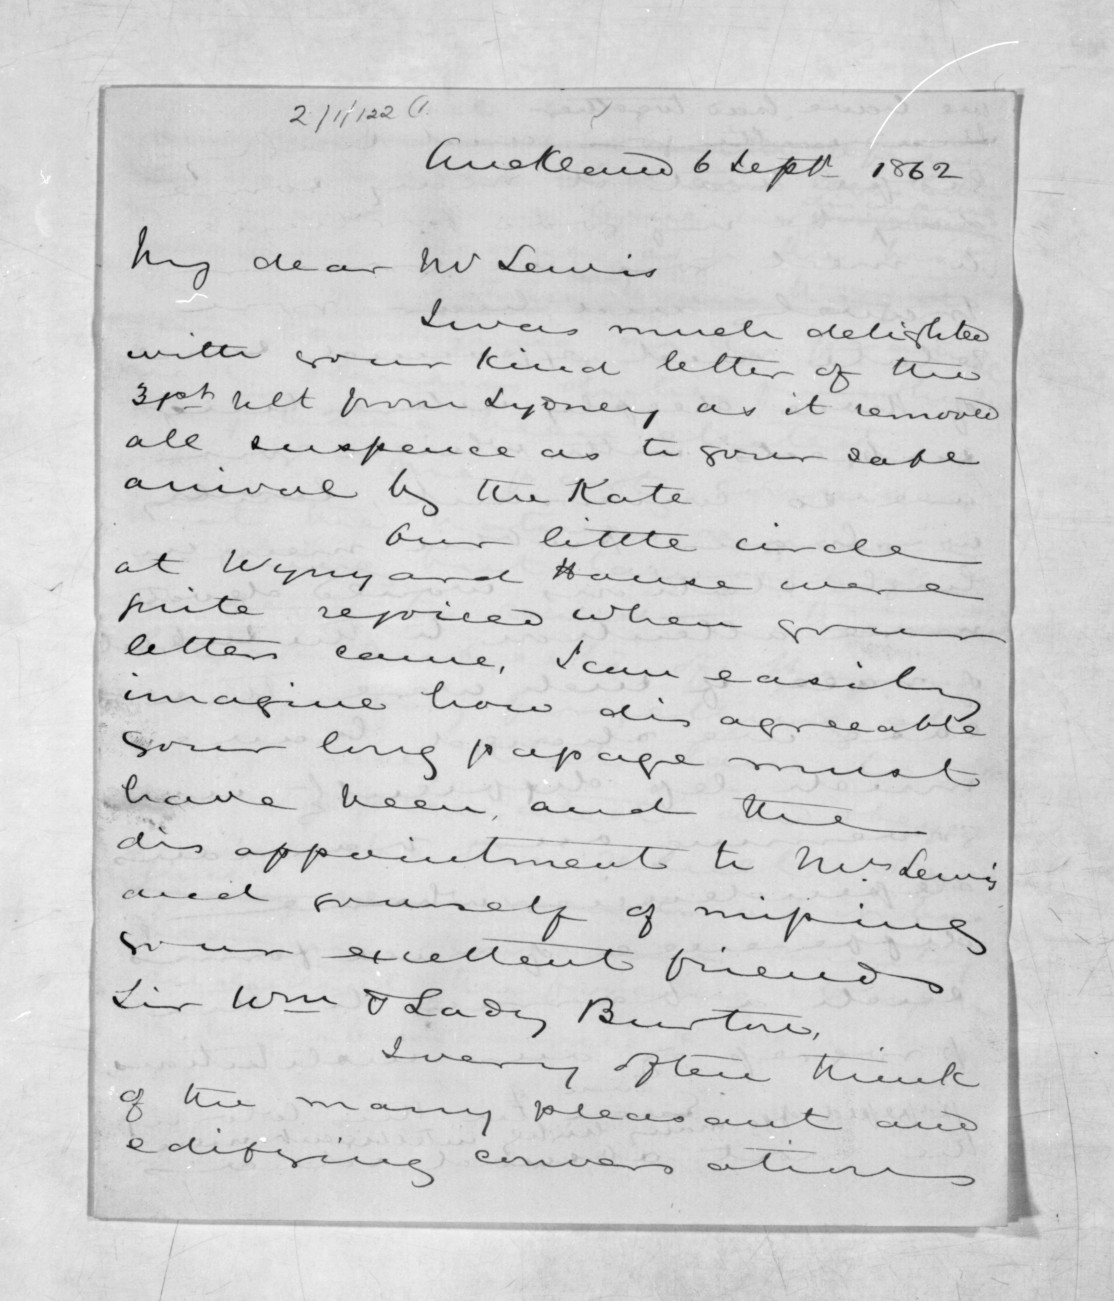 2/1/122 A
Auckland 6 Septr 1862
My dear Mr Lewis
I was much delighted
with your kind letter of the
31st ult from Sydney as it removed
all suspence as to your safe
arrival by the Kate
Our little circle
at Wynyard House were
quite rejoiced when your
letters came, I can easily
imagine how dis agreeable
your long passage must
have been, and the
dis appointment to Mrs Lewis
and yourself of missing
your excellent friends
Sir Wm & Lady Burton,
I very often think
of the many pleasant and
edifying convers ations